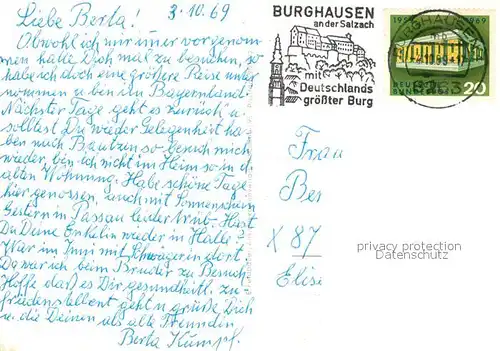 3.10.69
Liebe Berta!
Obwohl ich mir imer vorgenom-
men hatte Dich mal zu besuchen, so
habe ich doch eine größere Reise unter
nommen u. bin in Bayernland.
Nächster Tage geht es zurück u.
solltest Du wieder Gelegenheit ha-
ben nach Bautzen so besuch mich
wieder, bin ich nicht im Heim so in d.
alten Wohnung. Habe schöne Tage
hier genossen, auch mit Sonnenschein
Gestern in Passau leider trüb. Hast
Du Deine Enkelin wieder in Halle?
War im Juni mit Schwägerin dort
Da war ich beim Bruder zu Besuch
Hoffe daß es Dir gesundheitl. zu-
friedenstellent geht u. grüße Dich
u. die Deinen als alte Freundin
Berta Kumpf.
BURGHAUSEN
an der Salzach
mit
Deutschlands
größter Burg
BURGHAUSEN
1969
DEUTSCHE
BUNDESPOST
20
Frau
Ber
X 87
Elise
privacy protection
Datenschutz